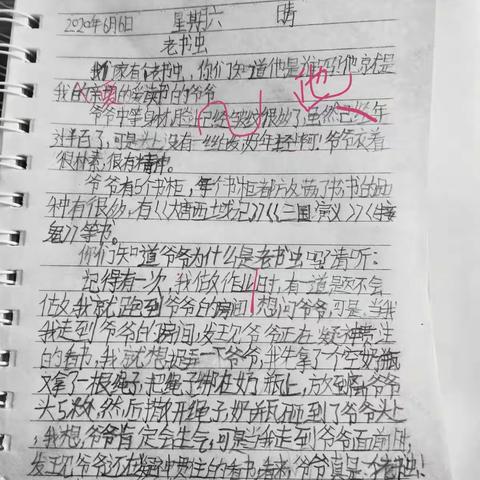 2020年6月6日 星期六 晴
老书虫
我们家有个老书虫，你们知道他是谁吗？他就是
我的亲爱的爱读书的爷爷
爷爷中等身材，已经很了，他虽然已经年
过半百了，可是头上没有一丝白发，两年轻啊！爷爷衣着
很朴素，很有精神。
爷爷有5个书柜，每个书柜都放满了书，书的
种有很多，有《大唐西域记》《三国演义》《捉
鬼》等书。
你们知道爷爷为什么是老书虫吗？请听：
记得有一次，我做作业时，有一道题不会
做，我就跑到爷爷的房间，想问爷爷，可是，当我
我走到爷爷的房间，发现爷爷正在凝神贯注
的看书，我就想捉弄一下爷爷，我先拿了个空奶瓶
又拿了一根绳子，把绳子绑在奶瓶上，放到离爷爷
头5米，然后揽开绳子，奶瓶砸到了爷爷头上
，我想，爷爷肯定会生气，可是当我走到爷爷面前时，
发现爷爷还在凝神贯注的看书，爷爷真是一个老书虫！